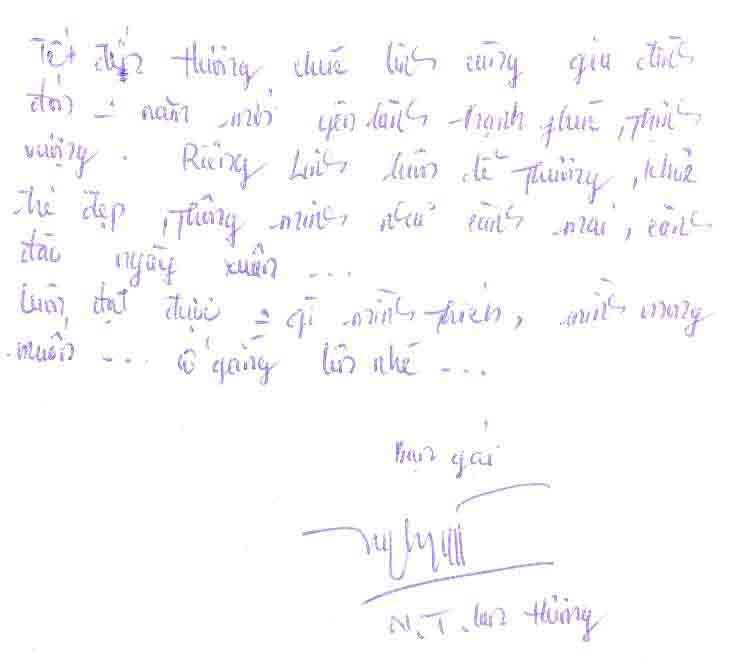 Tết đến thương chúc linh cùng gia đình
đón = năm mới yên lành hạnh phúc, thịnh
vượng. Riêng Linh luôn dễ thương, khoẻ
thế đẹp, thông minh như cành mai, cành
đào ngày xuân ...
luôn đạt được = gì mình thích, mình mong
muốn ... cố gắng lên nhé ...
bạn gái
N.T. lan thương